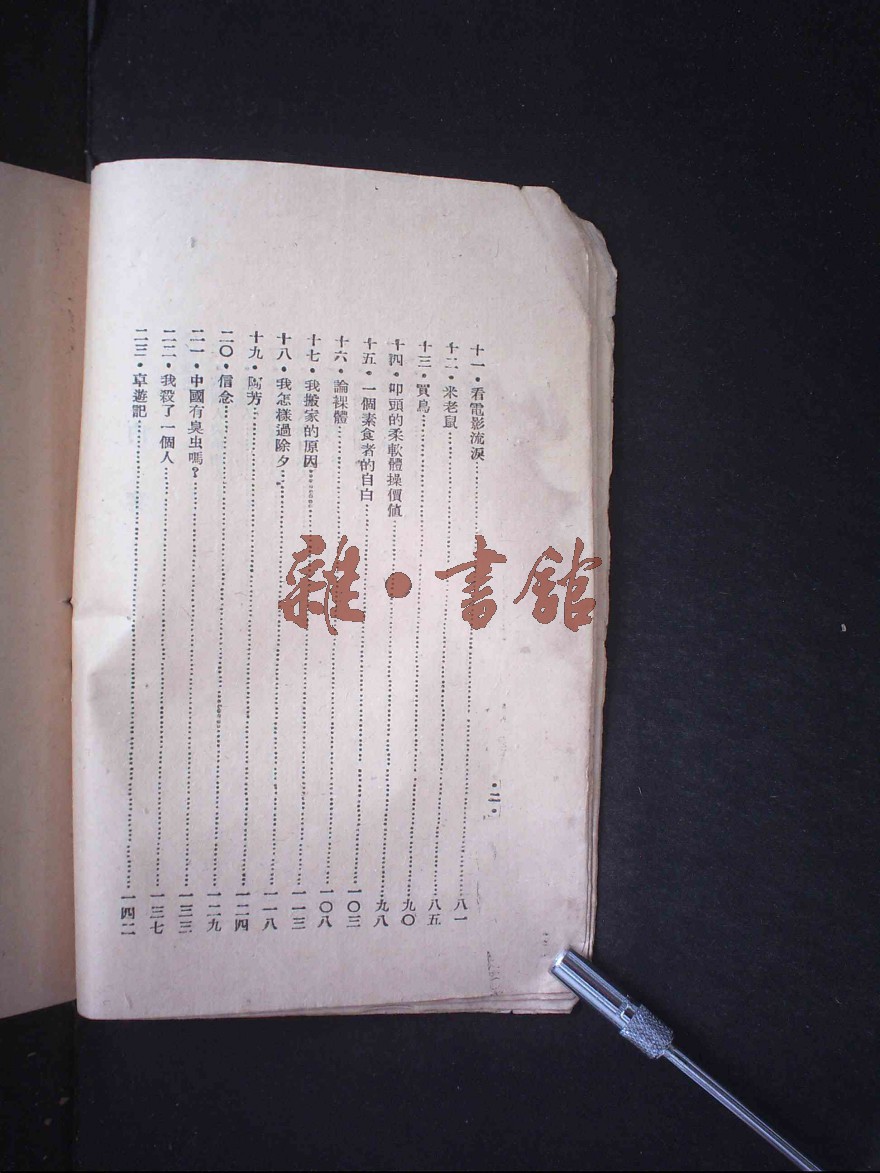 十一•看電影流淚……八一
十二•米老鼠……八五
十三•買鳥……九〇
十四•叩頭的柔軟體操價值……九八
十五•一個素食者的自白……一〇三
十六•論裸體……一〇八
十七•我搬家的原因……一一三
十八•我怎樣過除夕……一一八
十九•陶芳……一二四
二〇•信念……一二九
二一•中國有臭虫嗎?……一三三
二二•我殺了一個人……一三七
二三•卓遊記……一四二
•二•
雜•書館